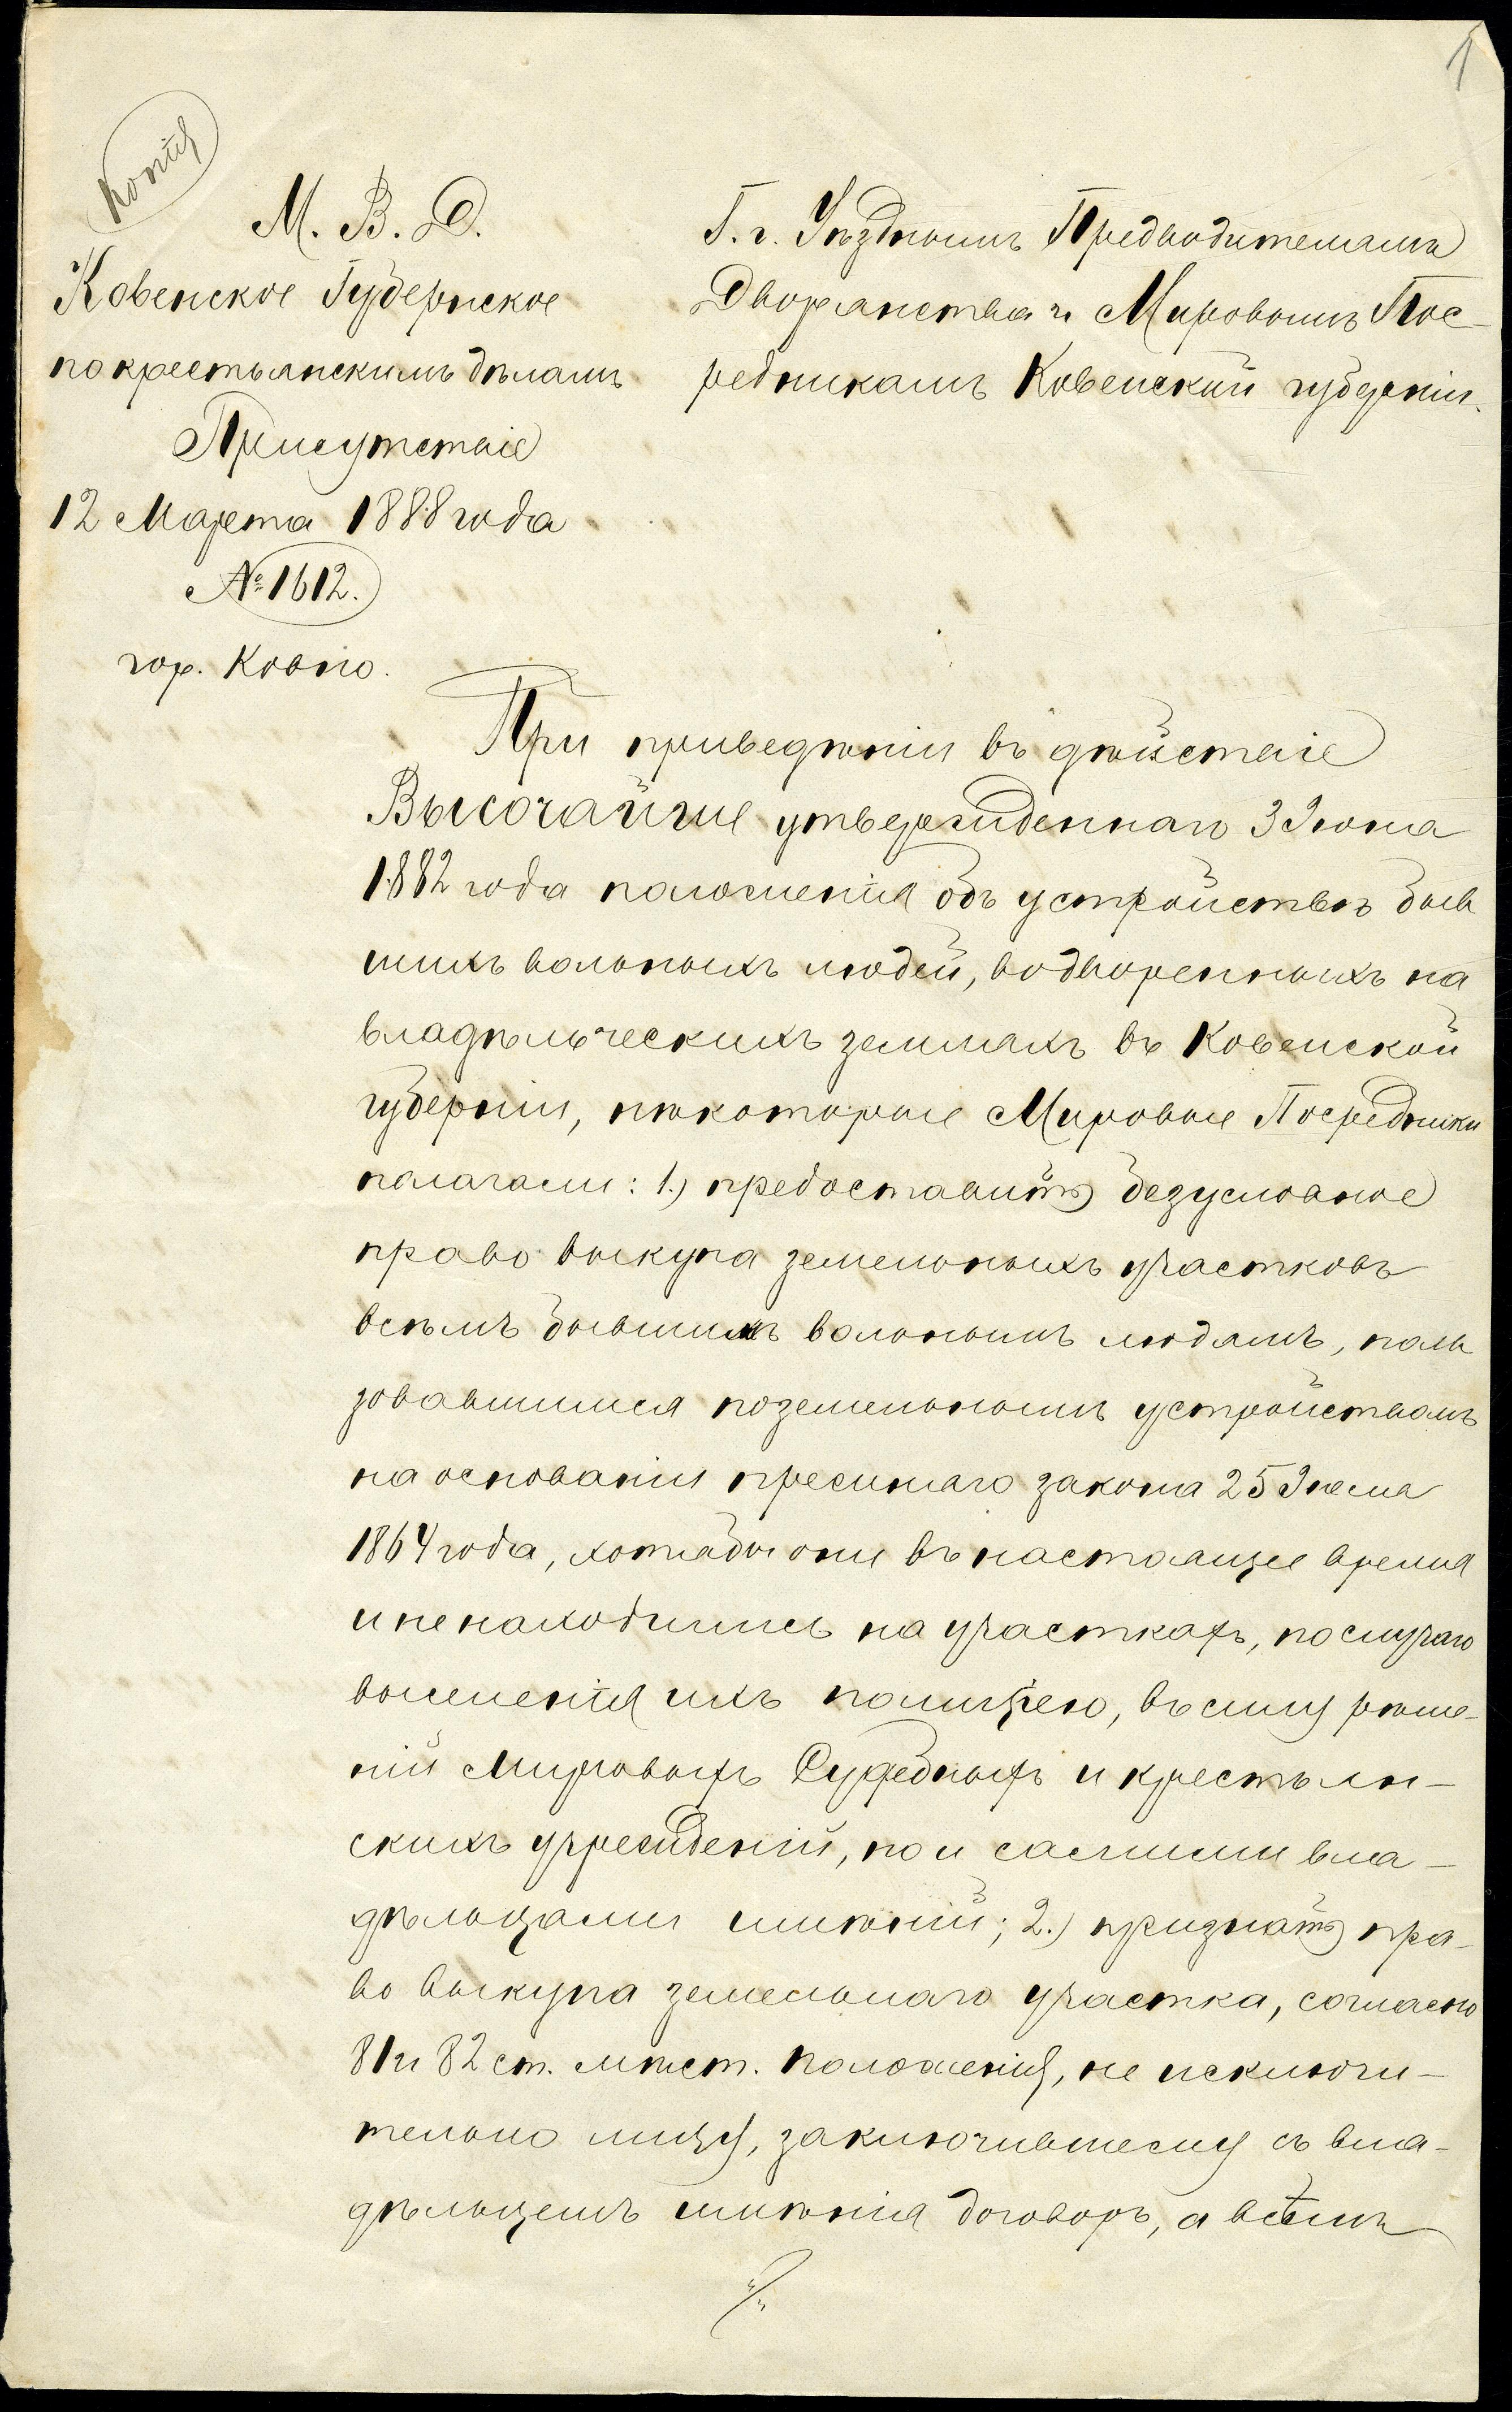 1
Копія
М. В. Д.
Ковенское Губернское
по крестьянскимъ дѣламъ
Присутствіе
12 Марта 1888 года
№ 1612.
гор. Ковно.
Г.г. Уѣзднымъ Предводителямъ
Дворянства и Мировымъ Пос-
редникамъ Ковенской губерніи.
При приведеніи въ дѣйствіе
Высочайше утвержденнаго 3 Іюня
1882 года положенія объ устройствѣ быв
шихъ вольныхъ людей, водворенныхъ на
владѣльческихъ земляхъ въ Ковенской
губерніи, нѣкоторые Мировые Посредники
полагали: 1.) предоставить безусловное
право выкупа земельныхъ участковъ
всѣмъ бывшимъ вольнымъ людямъ, поль
зовавшимся поземельнымъ устройствомъ
на основаніи прежняго закона 25 Іюля
1864 года, хотябы они въ настоящее время
и не находились на участкахъ, по случаю
выселенія ихъ полиціею, въ силу рѣше-
ній Мировыхъ Судебныхъ и крестьян-
скихъ учрежденій, но и самими вла-
дѣльцами имѣній; 2.) признать пра-
во выкупа земельнаго участка, согласно
81 и 82 ст. мѣст. положенія, не исключи-
тельно лицу, заключившему съ вла-
дѣльцемъ имѣнія договоръ, а всѣмъ